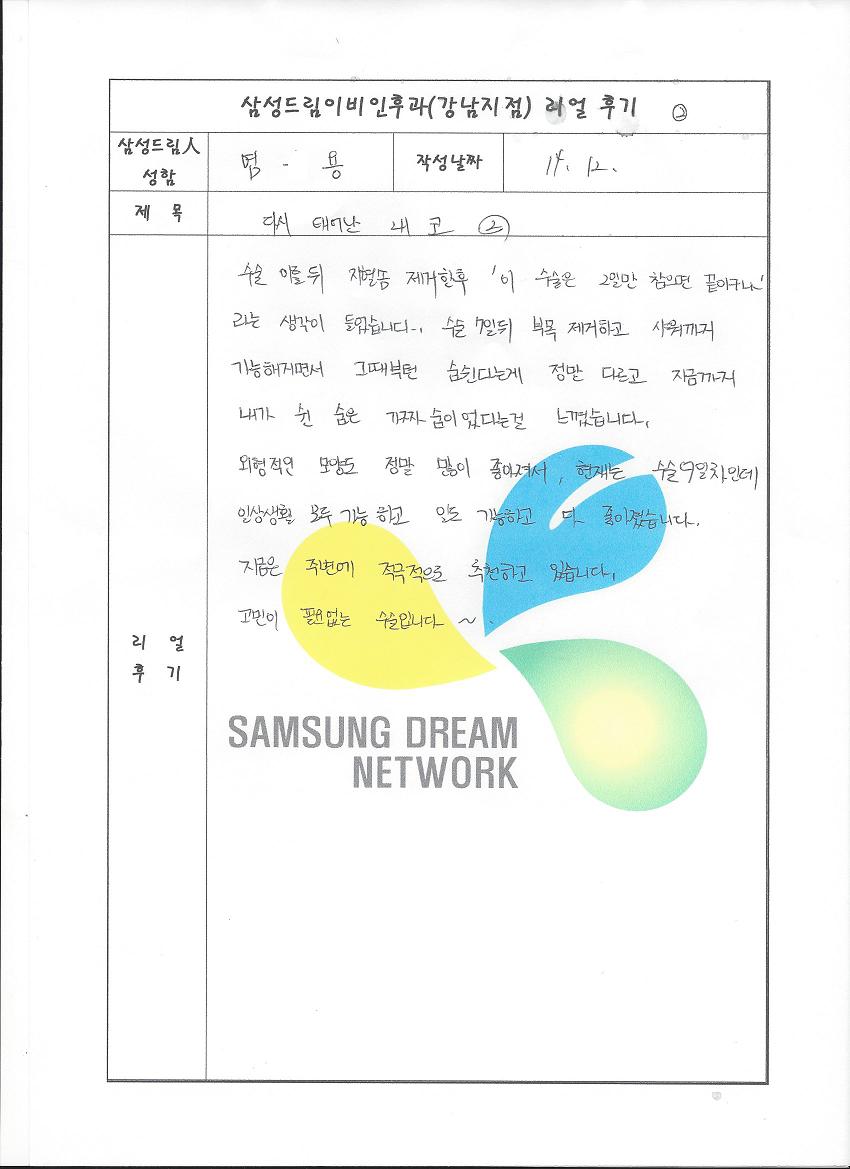 삼성드림이비인후과(강남지점) 리얼 후기 ②
삼성드림人
성함
염 - 용
작성날짜
14. 12.
제 목
다시 태어난 내 코 ②
수술 이틀뒤 지혈솜 제거한후 '이 수술은 2일만 참으면 끝이구나'
라는 생각이 들었습니다., 수술 7일뒤 부목 제거하고 샤워까지
가능해지면서 그때부턴 숨쉰다는게 정말 다르고 지금까지
내가 쉰 숨은 가짜 숨이었다는걸 느꼈습니다.
외형적인 모양도 정말 많이 좋아져서, 현재는 수술 9일차인데
일상생활 모두 가능하고 일도 가능하고 다 좋아졌습니다.
지금은 주변에 적극적으로 추천하고 있습니다.
고민이 필요없는 수술입니다 ~.
리 얼
후 기
SAMSUNG DREAM
NETWORK